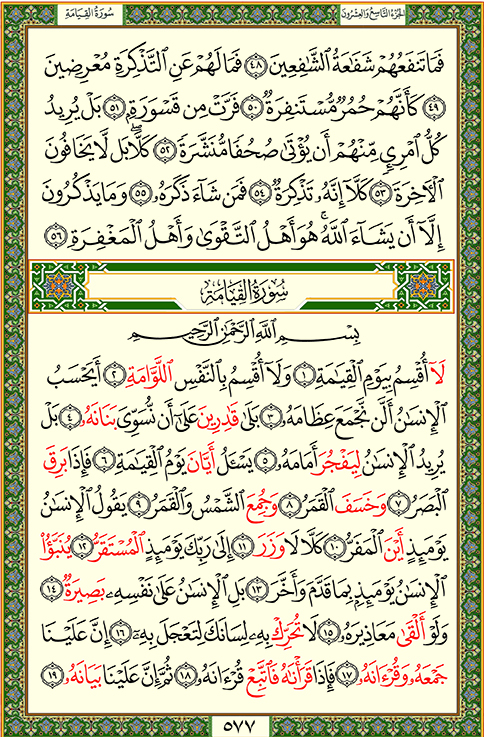 سُورَةُ القِيَامَةِ الجُزْءُ التَّاسِعُ وَالعِشْرُونَ
فَمَا تَنفَعُهُمْ شَفَٰعَةُ ٱلشَّٰفِعِينَ ٤٨ فَمَا لَهُمْ عَنِ ٱلتَّذْكِرَةِ مُعْرِضِينَ
٤٩ كَأَنَّهُمْ حُمُرٌ مُّسْتَنفِرَةٌ ٥٠ فَرَّتْ مِن قَسْوَرَةٍ ٥١ بَلْ يُرِيدُ
كُلُّ ٱمْرِئٍ مِّنْهُمْ أَن يُؤْتَىٰ صُحُفًا مُّنَشَّرَةً ٥٢ كَلَّا ۖ بَل لَّا يَخَافُونَ
ٱلْأَخِرَةَ ٥٣ كَلَّآ إِنَّهُۥ تَذْكِرَةٌ ٥٤ فَمَن شَآءَ ذَكَرَهُۥ ٥٥ وَمَا يَذْكُرُونَ
إِلَّآ أَن يَشَآءَ ٱللَّهُ ۚ هُوَ أَهْلُ ٱلتَّقْوَىٰ وَأَهْلُ ٱلْمَغْفِرَةِ ٥٦
سُورَةُ القِيَامَةِ
بِسْمِ ٱللَّهِ ٱلرَّحْمَٰنِ ٱلرَّحِيمِ
لَآ أُقْسِمُ بِيَوْمِ ٱلْقِيَٰمَةِ ١ وَلَآ أُقْسِمُ بِٱلنَّفْسِ ٱللَّوَّامَةِ ٢ أَيَحْسَبُ
ٱلْإِنسَٰنُ أَلَّن نَّجْمَعَ عِظَامَهُۥ ٣ بَلَىٰ قَٰدِرِينَ عَلَىٰٓ أَن نُّسَوِّيَ بَنَانَهُۥ ٤ بَلْ
يُرِيدُ ٱلْإِنسَٰنُ لِيَفْجُرَ أَمَامَهُۥ ٥ يَسْـَٔلُ أَيَّانَ يَوْمُ ٱلْقِيَٰمَةِ ٦ فَإِذَا بَرِقَ
ٱلْبَصَرُ ٧ وَخَسَفَ ٱلْقَمَرُ ٨ وَجُمِعَ ٱلشَّمْسُ وَٱلْقَمَرُ ٩ يَقُولُ ٱلْإِنسَٰنُ
يَوْمَئِذٍ أَيْنَ ٱلْمَفَرُّ ١٠ كَلَّا لَا وَزَرَ ١١ إِلَىٰ رَبِّكَ يَوْمَئِذٍ ٱلْمُسْتَقَرُّ ١٢ يُنَبَّؤُا۟
ٱلْإِنسَٰنُ يَوْمَئِذٍۭ بِمَا قَدَّمَ وَأَخَّرَ ١٣ بَلِ ٱلْإِنسَٰنُ عَلَىٰ نَفْسِهِۦ بَصِيرَةٌ ١٤
وَلَوْ أَلْقَىٰ مَعَاذِيرَهُۥ ١٥ لَا تُحَرِّكْ بِهِۦ لِسَانَكَ لِتَعْجَلَ بِهِۦٓ ١٦ إِنَّ عَلَيْنَا
جَمْعَهُۥ وَقُرْءَانَهُۥ ١٧ فَإِذَا قَرَأْنَٰهُ فَٱتَّبِعْ قُرْءَانَهُۥ ١٨ ثُمَّ إِنَّ عَلَيْنَا بَيَانَهُۥ ١٩
٥٧٧